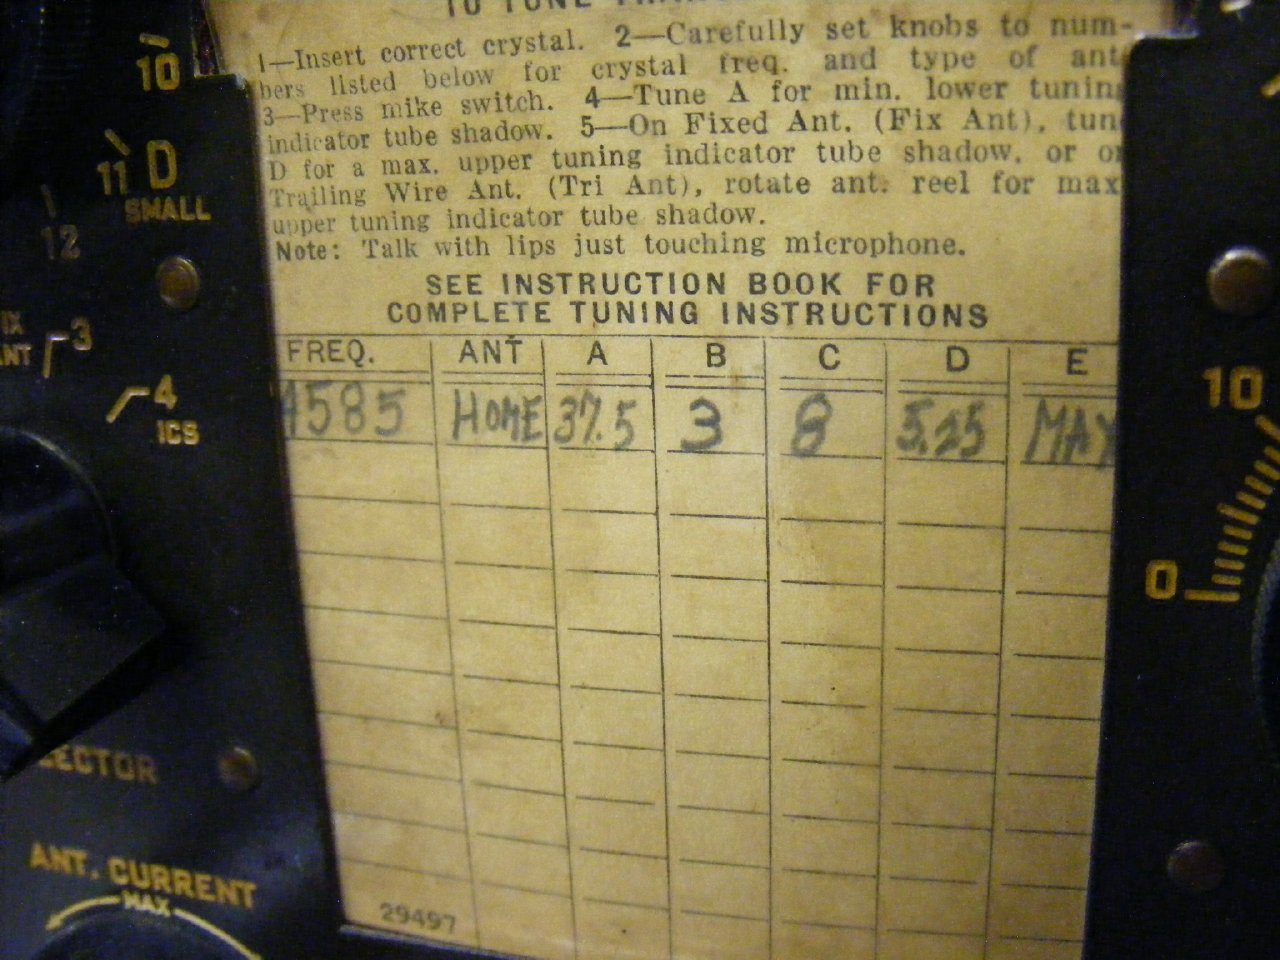 TO TUNE
1—Insert correct crystal. 2—Carefully set knobs to num-
bers listed below for crystal freq. and type of ant
3—Press mike switch. 4—Tune A for min. lower tuning
indicator tube shadow. 5—On Fixed Ant. (Fix Ant), tune
D for a max. upper tuning indicator tube shadow, or on
Trailing Wire Ant. (Trl Ant), rotate ant. reel for max
upper tuning indicator tube shadow.
Note: Talk with lips just touching microphone.
SEE INSTRUCTION BOOK FOR
COMPLETE TUNING INSTRUCTIONS
FREQ. ANT A B C D E
4585 HOME 37.5 3 8 5.25 MAX
29497
10
11 D
SMALL
12
IX
ANT 3
4
ICS
LECTOR
ANT. CURRENT
MAX
10
0